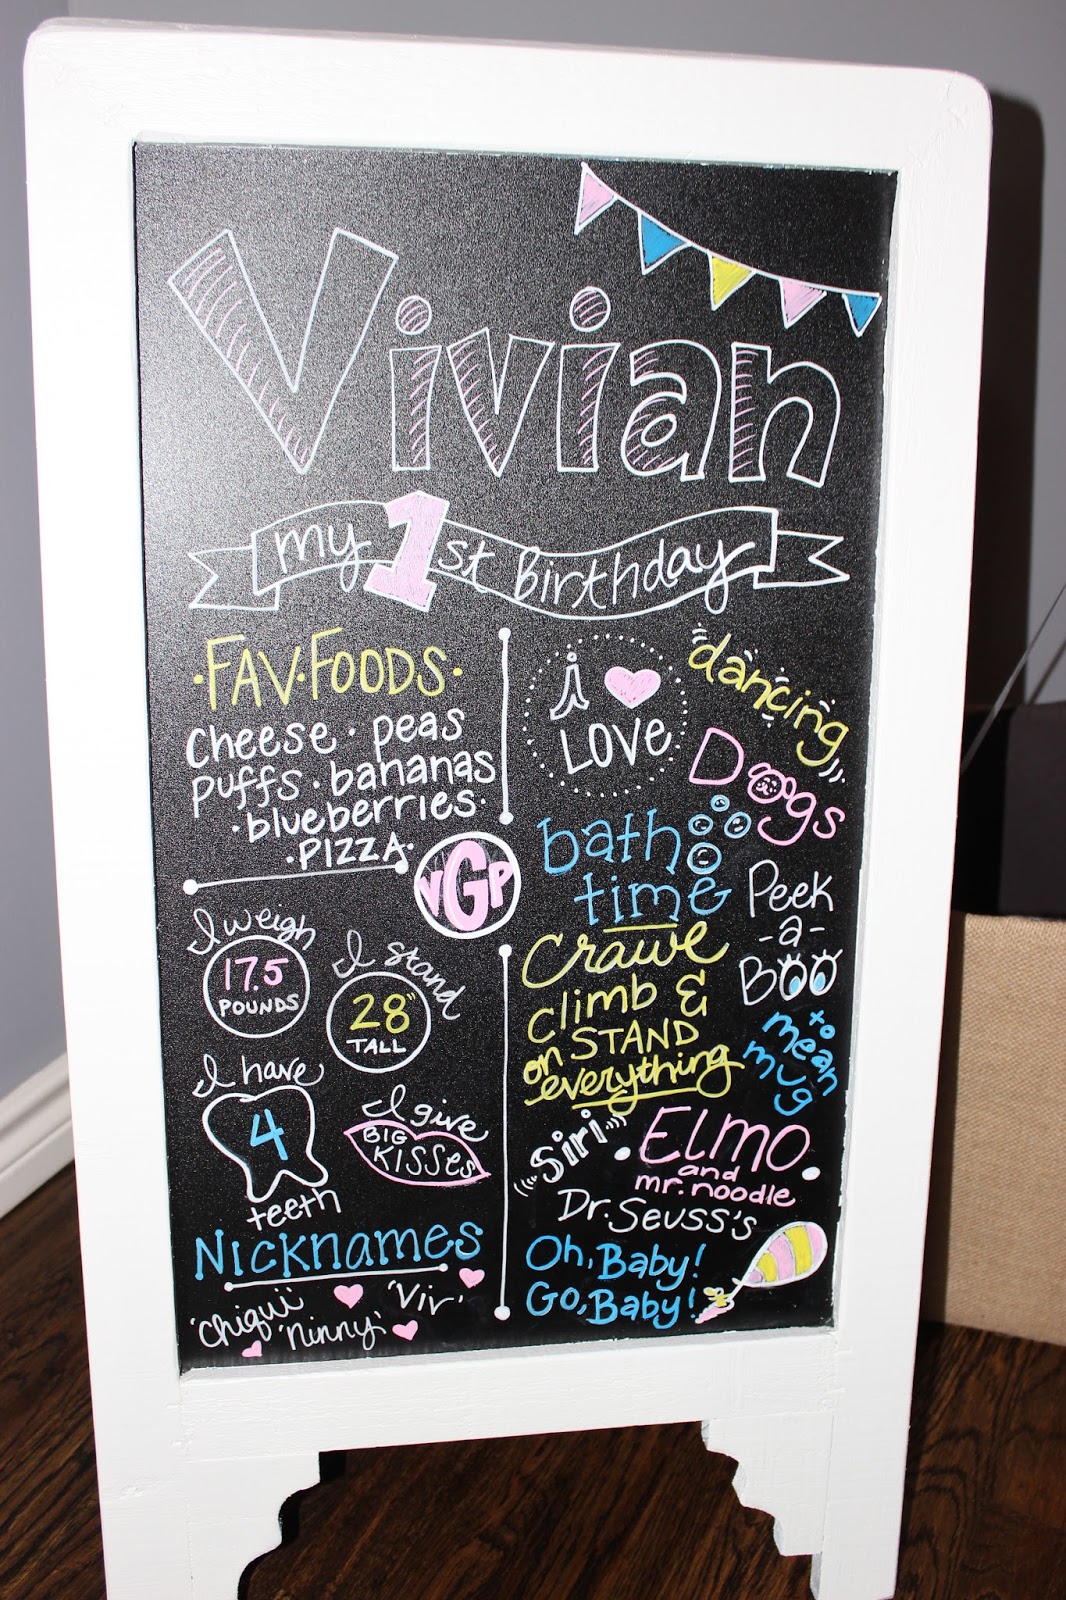 Vivian
my 1st birthday
·FAV·FOODS·
Cheese · peas
puffs · bananas
·blueberries·
·PIZZA·
VGP
I weigh
17.5
POUNDS
I stand
28"
TALL
I have
4
teeth
I give
BIG
KISSES
Nicknames
'Chiqui' 'Viv'
'ninny'
i
LOVE
dancing
Dogs
bath
time
Peek
-a-
BOO
Crawl
climb &
on STAND
everything
to
mean
mug
Siri
·ELMO·
and
mr. noodle
Dr. Seuss's
Oh, Baby!
Go, Baby!